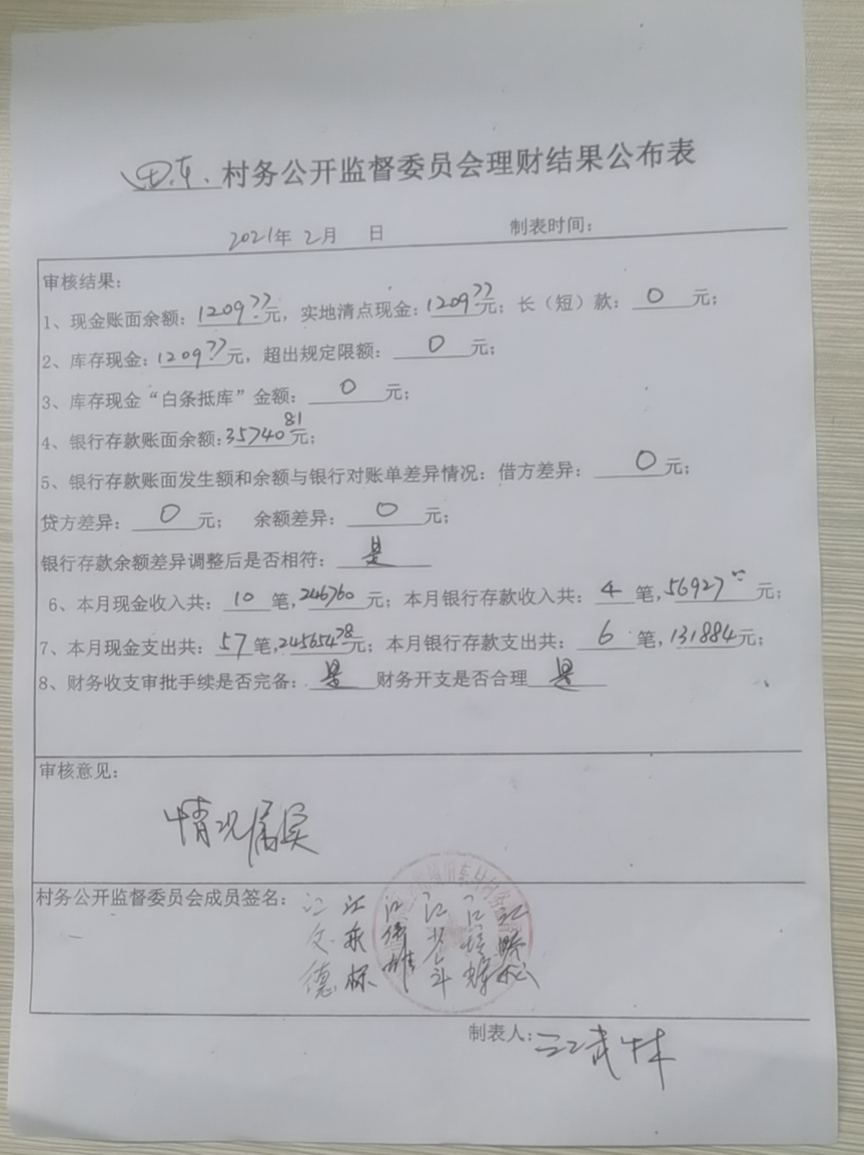 田东.村务公开监督委员会理财结果公布表
2021年 2月 日 制表时间：
审核结果：
1、现金账面余额：1209.77元，实地清点现金：1209.77元；长（短）款：0元；
2、库存现金：1209.77元，超出规定限额：0元；
3、库存现金“白条抵库”金额：0元；
4、银行存款账面余额：35740.81元；
5、银行存款账面发生额和余额与银行对账单差异情况：借方差异：0元；
贷方差异：0元； 余额差异：0元；
银行存款余额差异调整后是否相符：是
6、本月现金收入共：10笔，246760元；本月银行存款收入共：4笔，56927元；
7、本月现金支出共：57笔，245654.78元；本月银行存款支出共：6笔，131884元；
8、财务收支审批手续是否完备：是 财务开支是否合理 是
审核意见：
情况属实
村务公开监督委员会成员签名：江文德
制表人：江武林